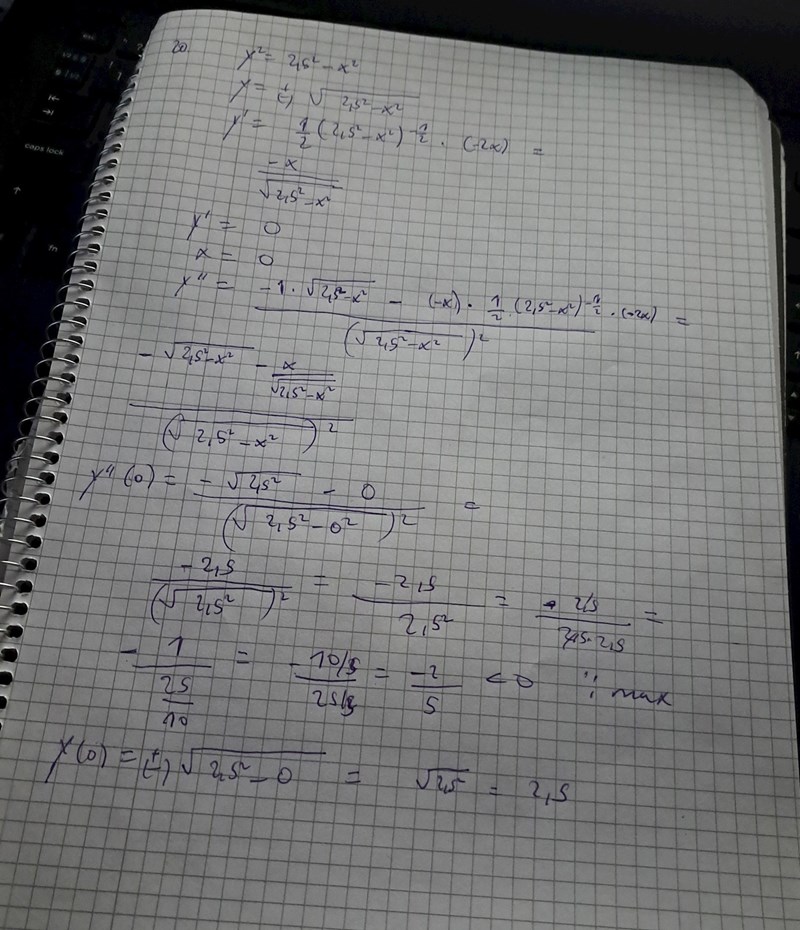 20.
y² = 2,5² - x²
y = (±) √(2,5² - x²)
y' = 1/2 (2,5² - x²)^(-1/2) · (-2x) =
-x / √(2,5² - x²)
y' = 0
x = 0
y'' = (-1 · √(2,5² - x²) - (-x) · 1/2 (2,5² - x²)^(-1/2) · (-2x)) / (√(2,5² - x²))² =
(-√(2,5² - x²) - x / √(2,5² - x²)) / (√(2,5² - x²))²
y''(0) = (-√(2,5²) - 0) / (√(2,5² - 0²))² =
-2,5 / (√(2,5²))² = -2,5 / 2,5² = - 2,5 / (2,5·2,5) =
- 1 / (25/10) = - (10/5) / (25/5) = -2 / 5 < 0 ∵ max
y(0) = (±) √(2,5² - 0) = √2,5 = 2,5
caps lock
fn